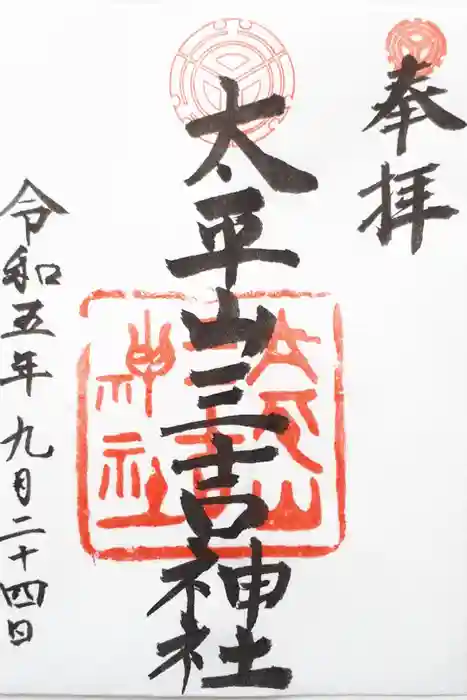 奉拝
太平山三吉神社
令和五年九月二十四日
太平山
三吉
神社